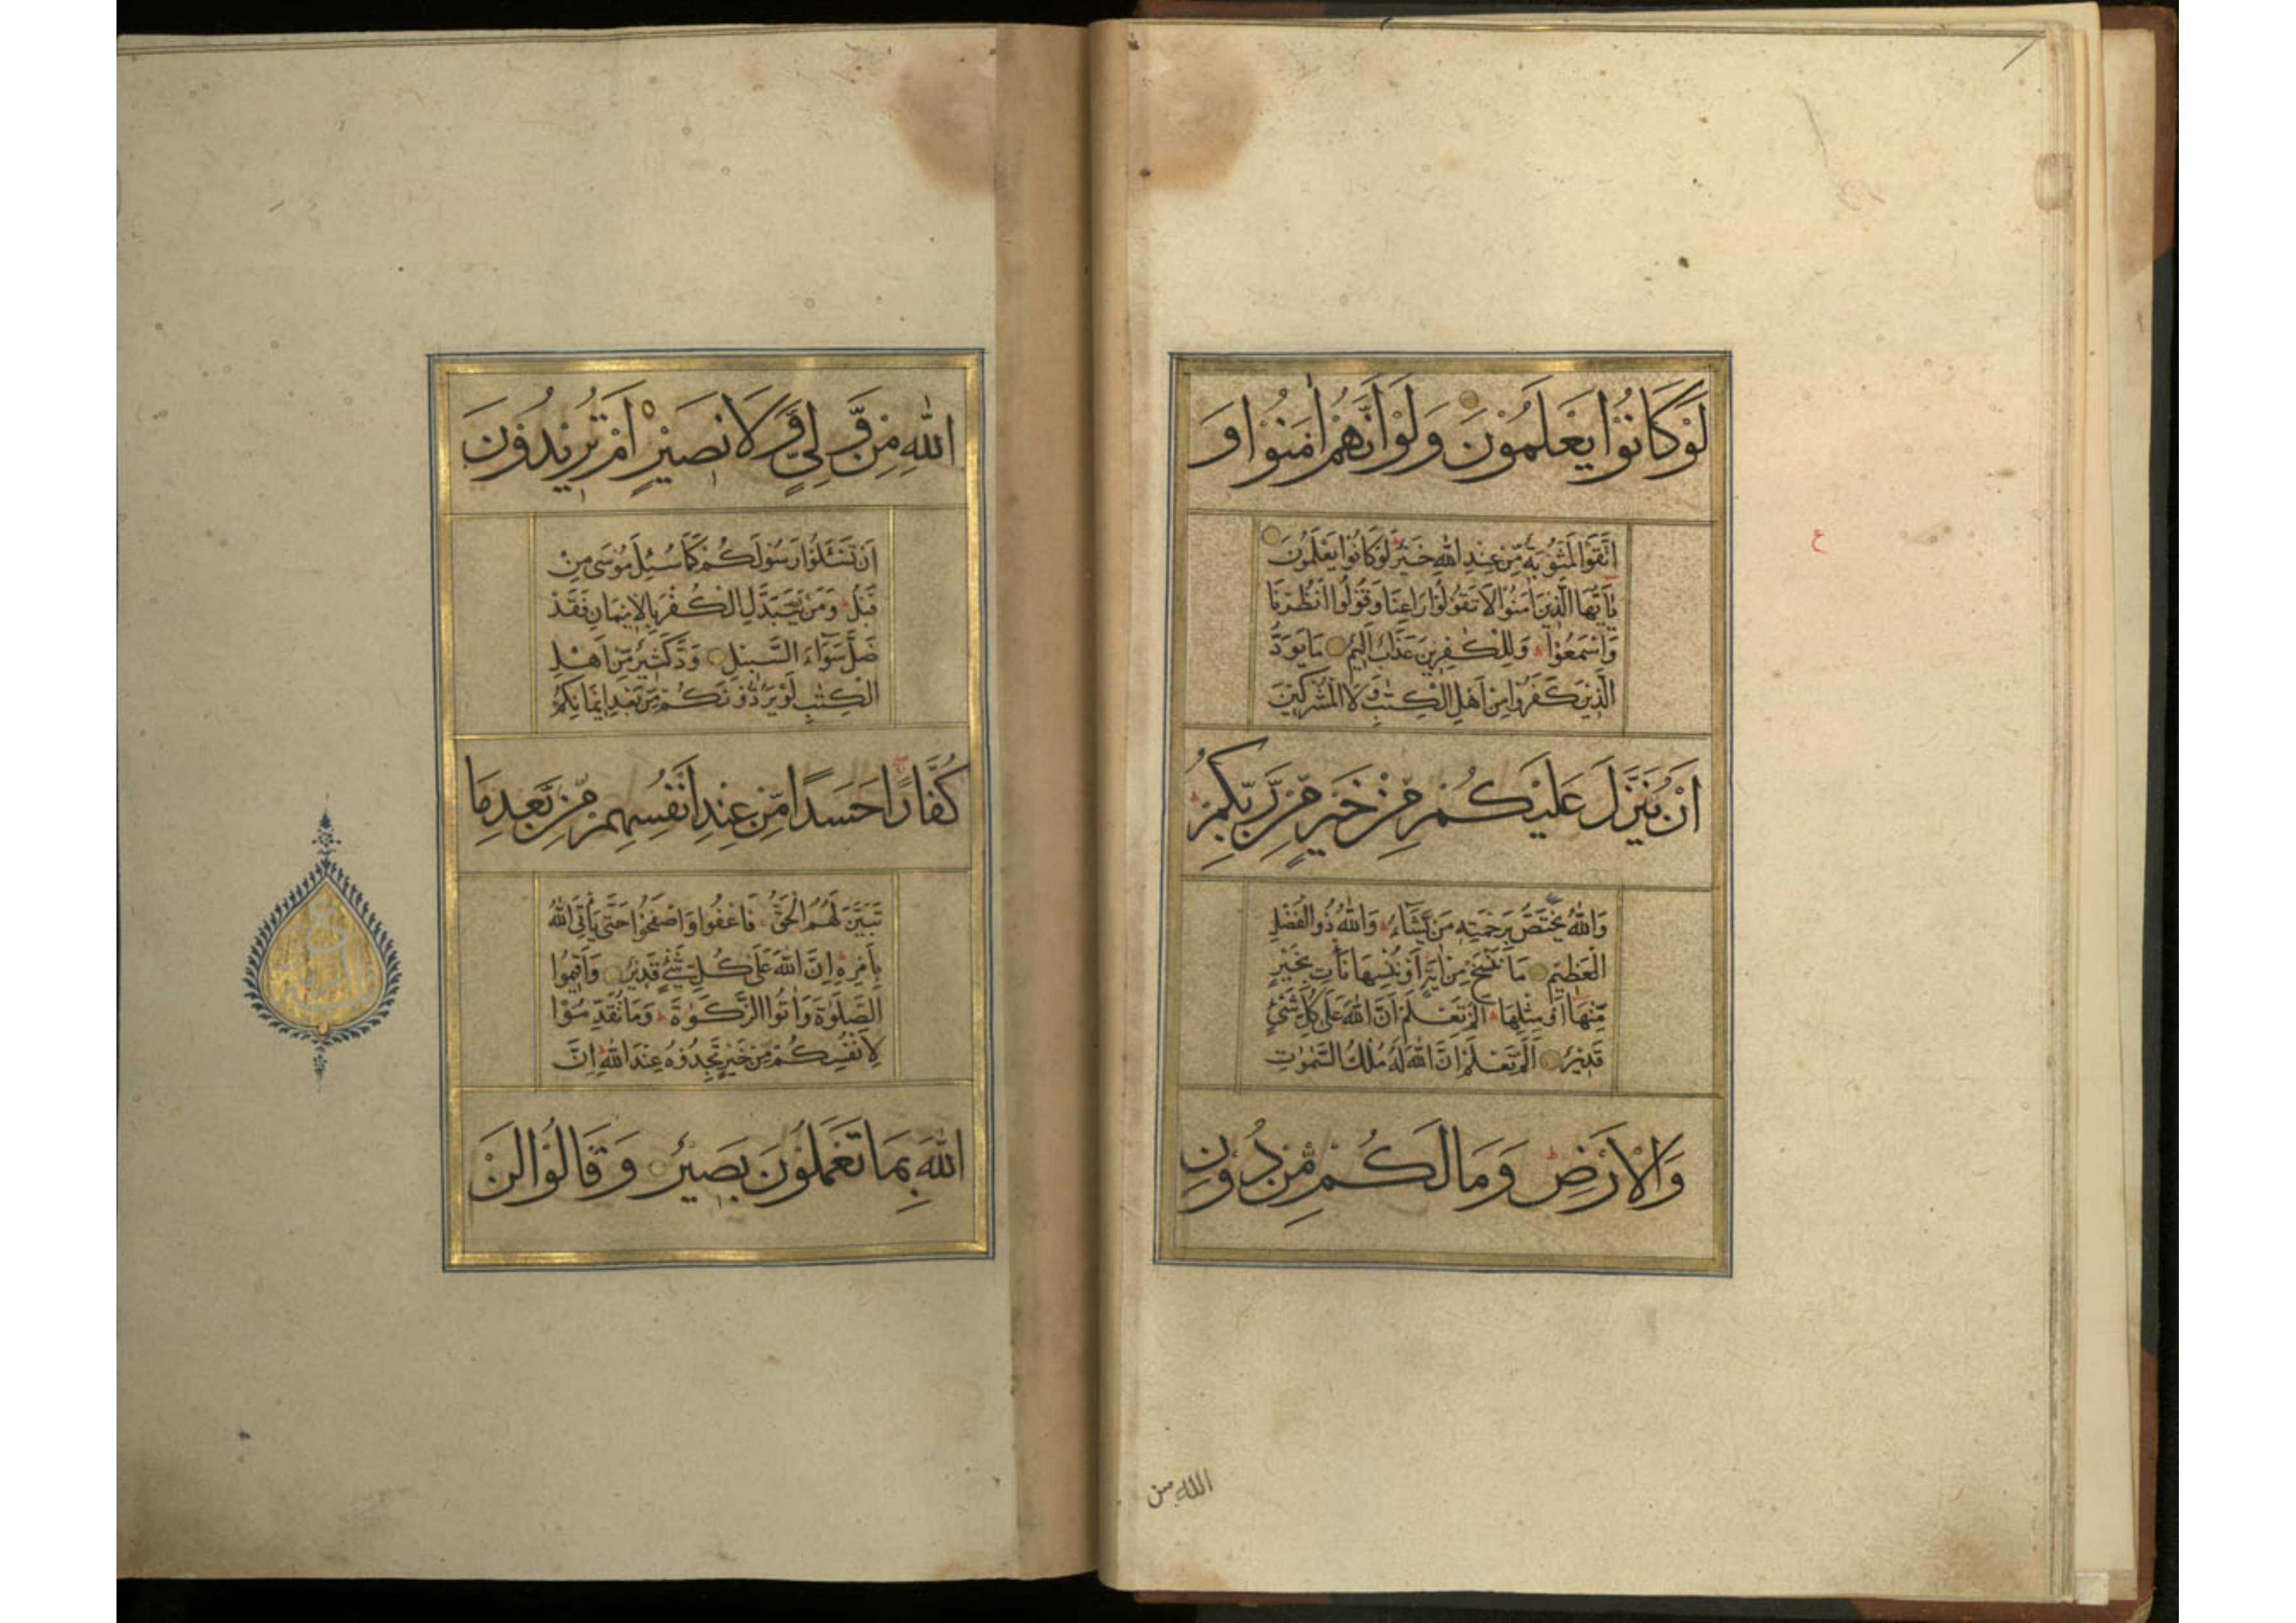 لَوْ كَانُوْا يَعْلَمُوْنَ وَلَوْ اَنَّهُمْ اٰمَنُوْا وَ
اتَّقَوْا لَمَثُوْبَةٌ مِّنْ عِنْدِ اللّٰهِ خَيْرٌ لَوْ كَانُوْا يَعْلَمُوْنَ
يٰاَيُّهَا الَّذِيْنَ اٰمَنُوْا لَا تَقُوْلُوْا رَاعِنَا وَقُوْلُوا انْظُرْنَا
وَاسْمَعُوْا وَلِلْكٰفِرِيْنَ عَذَابٌ اَلِيْمٌ مَا يَوَدُّ
الَّذِيْنَ كَفَرُوْا مِنْ اَهْلِ الْكِتٰبِ وَلَا الْمُشْرِكِيْنَ
اَنْ يُنَزَّلَ عَلَيْكُمْ مِّنْ خَيْرٍ مِّنْ رَّبِّكُمْ
وَاللّٰهُ يَخْتَصُّ بِرَحْمَتِهٖ مَنْ يَّشَاءُ وَاللّٰهُ ذُو الْفَضْلِ
الْعَظِيْمِ مَا نَنْسَخْ مِنْ اٰيَةٍ اَوْ نُنْسِهَا نَأْتِ بِخَيْرٍ
مِّنْهَا اَوْ مِثْلِهَا اَلَمْ تَعْلَمْ اَنَّ اللّٰهَ عَلٰى كُلِّ شَيْءٍ
قَدِيْرٌ اَلَمْ تَعْلَمْ اَنَّ اللّٰهَ لَهٗ مُلْكُ السَّمٰوٰتِ
وَالْاَرْضِ وَمَا لَكُمْ مِّنْ دُوْنِ
الله من
ع
اللّٰهِ مِنْ وَّلِيٍّ وَّلَا نَصِيْرٍ اَمْ تُرِيْدُوْنَ
اَنْ تَسْئَلُوْا رَسُوْلَكُمْ كَمَا سُئِلَ مُوْسٰى مِنْ
قَبْلُ وَمَنْ يَّتَبَدَّلِ الْكُفْرَ بِالْاِيْمَانِ فَقَدْ
ضَلَّ سَوَآءَ السَّبِيْلِ وَدَّ كَثِيْرٌ مِّنْ اَهْلِ
الْكِتٰبِ لَوْ يَرُدُّوْنَكُمْ مِّنْ بَعْدِ اِيْمَانِكُمْ
كُفَّارًا حَسَدًا مِّنْ عِنْدِ اَنْفُسِهِمْ مِّنْ بَعْدِ مَا
تَبَيَّنَ لَهُمُ الْحَقُّ فَاعْفُوْا وَاصْفَحُوْا حَتّٰى يَأْتِيَ اللّٰهُ
بِاَمْرِهٖ اِنَّ اللّٰهَ عَلٰى كُلِّ شَيْءٍ قَدِيْرٌ وَاَقِيْمُوا
الصَّلٰوةَ وَاٰتُوا الزَّكٰوةَ وَمَا تُقَدِّمُوْا
لِاَنْفُسِكُمْ مِّنْ خَيْرٍ تَجِدُوْهُ عِنْدَ اللّٰهِ اِنَّ
اللّٰهَ بِمَا تَعْمَلُوْنَ بَصِيْرٌ وَقَالُوْا لَنْ